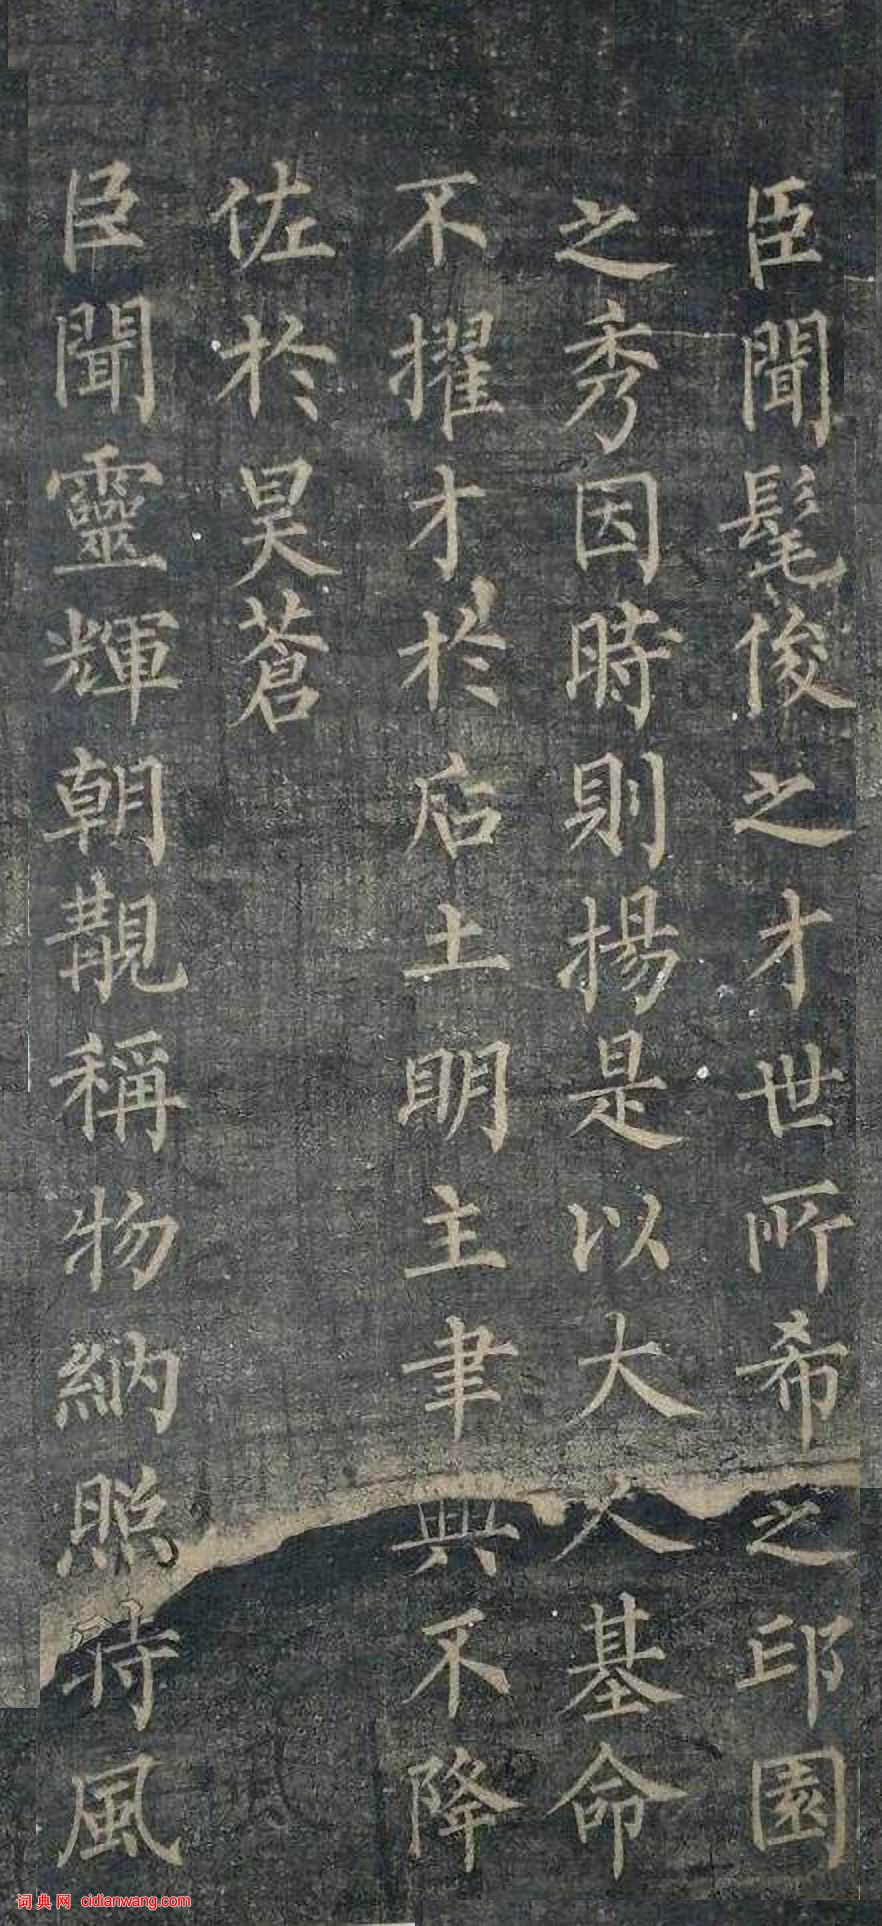 臣聞髦俊之才世所希之邱園
之秀因時則揚是以大人基命
不擢才於后土明主聿興不降
佐於昊蒼
臣聞靈輝朝覯稱物納照時風
词典网 cidianwang.com